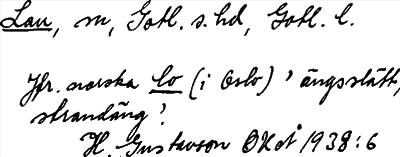 Lau, m, Gotl. s. hd, Gotl. l.
Jfr. norska lo (i Oslo) 'ängsslätt,
strandäng'.
H. Gustavson OKoA 1938:6